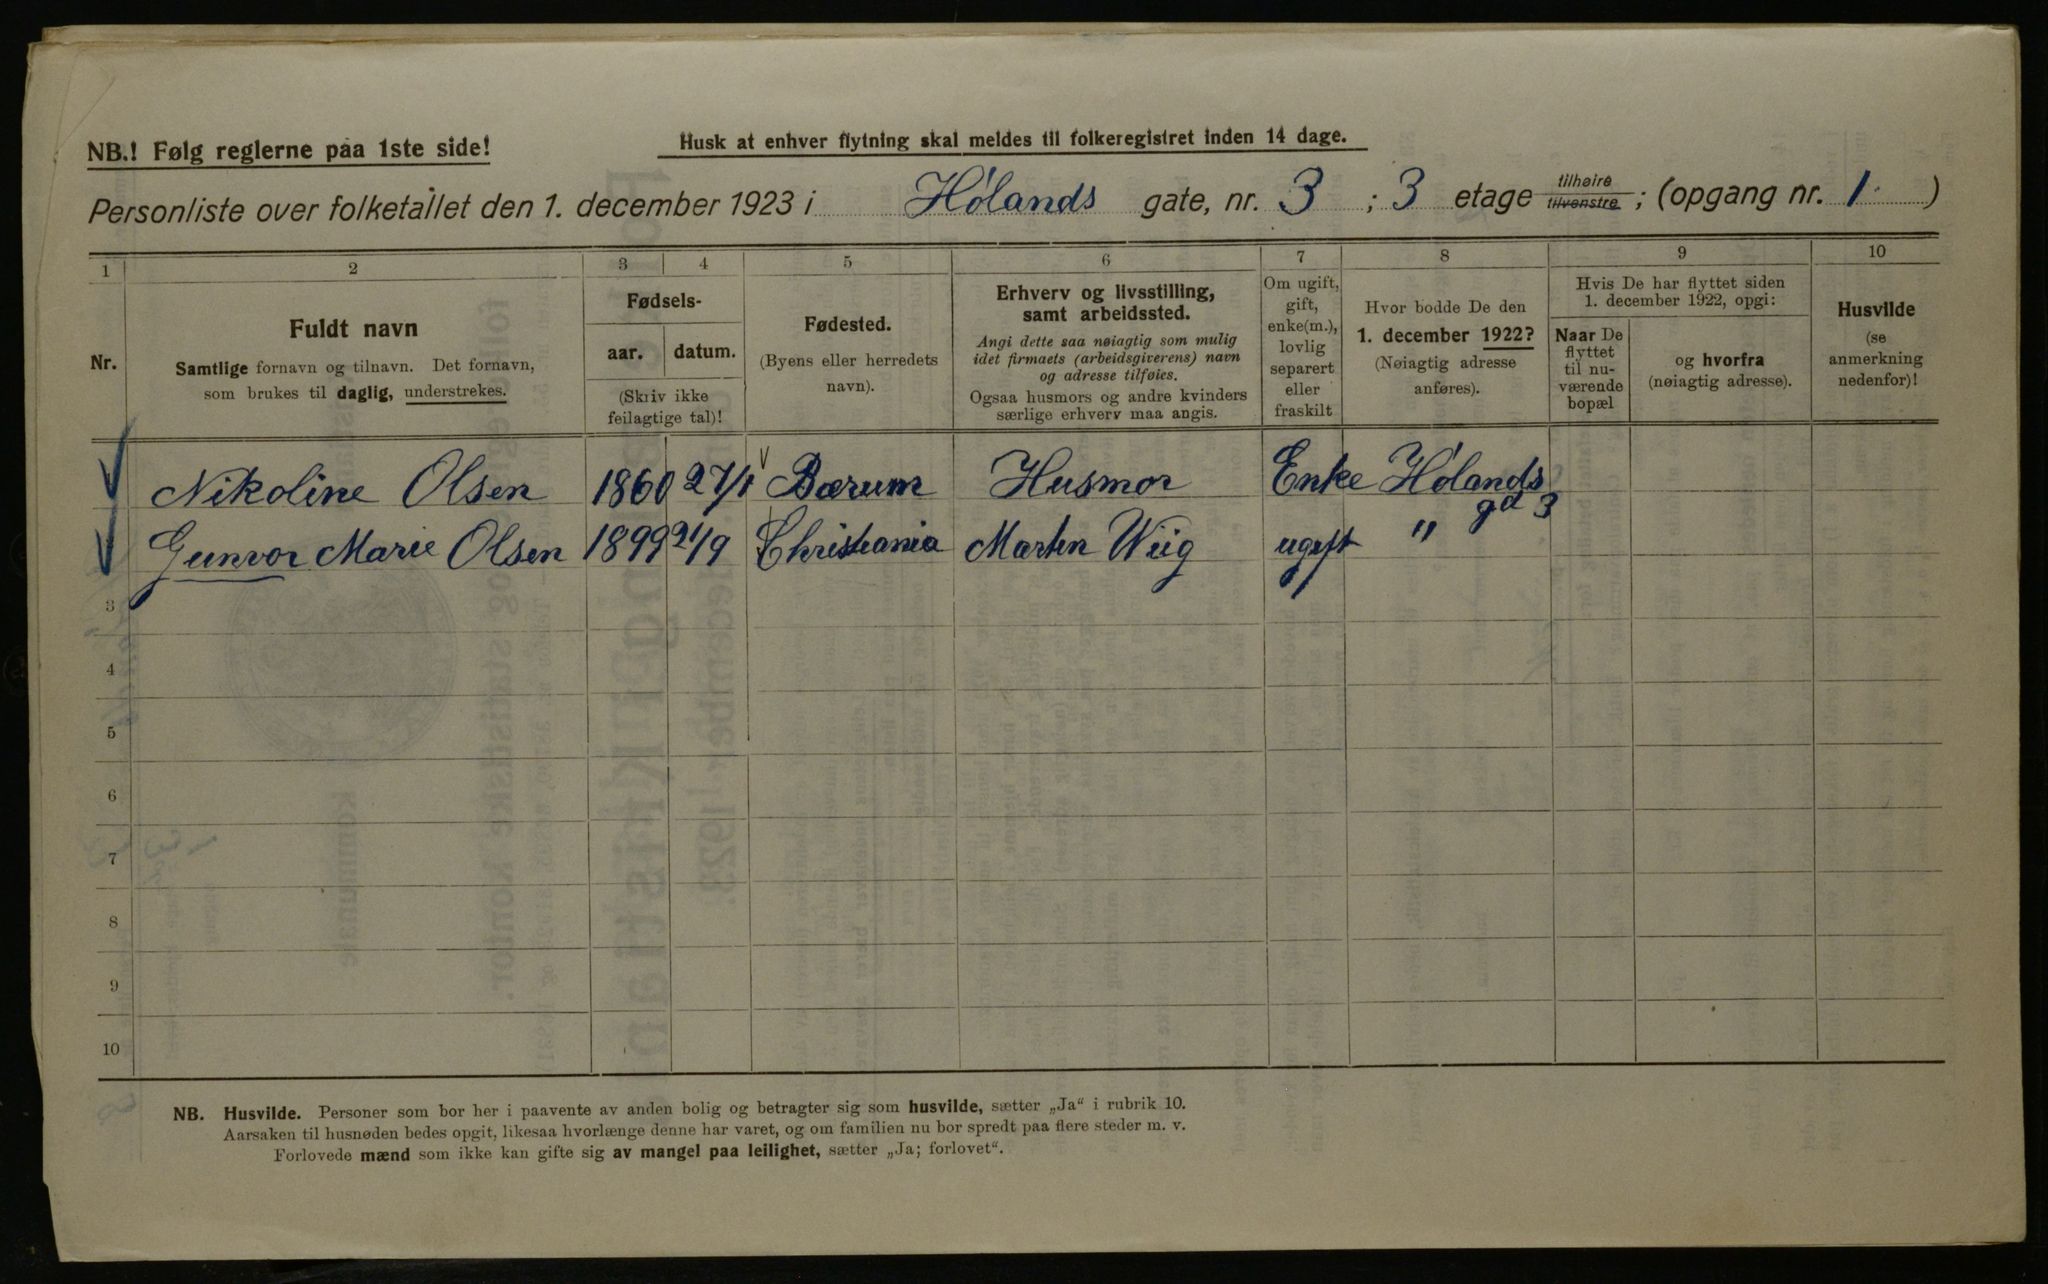 NB.! Følg reglerne paa 1ste side!
Husk at enhver flytning skal meldes til folkeregistret inden 14 dage.
Personliste over folketallet den 1. december 1923 i Hólands gate, nr. 3 ; 3 etage tilhøire tilvenstre ; (opgang nr. 1 )
1 2 3 4 5 6 7 8 9 10
Nr.
Fuldt navn
Samtlige fornavn og tilnavn. Det fornavn,
som brukes til daglig, understrekes.
Fødsels-
aar. datum.
(Skriv ikke
feilagtige tal)!
Fødested.
(Byens eller herredets
navn).
Erhverv og livsstilling,
samt arbeidssted.
Angi dette saa nøiagtig som mulig
idet firmaets (arbeidsgiverens) navn
og adresse tilføies.
Ogsaa husmors og andre kvinders
særlige erhverv maa angis.
Om ugift,
gift,
enke(m.),
lovlig
separert
eller
fraskilt
Hvor bodde De den
1. december 1922?
(Nøiagtig adresse
anføres).
Hvis De har flyttet siden
1. december 1922, opgi:
Naar De
flyttet
til nu-
værende
bopæl
og hvorfra
(nøiagtig adresse).
Husvilde
(se
anmerkning
nedenfor)!
Nikoline Olsen 1860 27/1 Bærum Husmor Enke Hólands
gd 3
Gunvor Marie Olsen 1899 21/9 Christiania Marten Wiig ugift "
3
4
5
6
7
8
9
10
NB. Husvilde. Personer som bor her i paavente av anden bolig og betragter sig som husvilde, sætter „Ja“ i rubrik 10.
Aarsaken til husnøden bedes opgit, likesaa hvorlænge denne har varet, og om familien nu bor spredt paa flere steder m. v.
Forlovede mænd som ikke kan gifte sig av mangel paa leilighet, sætter „Ja; forlovet“.